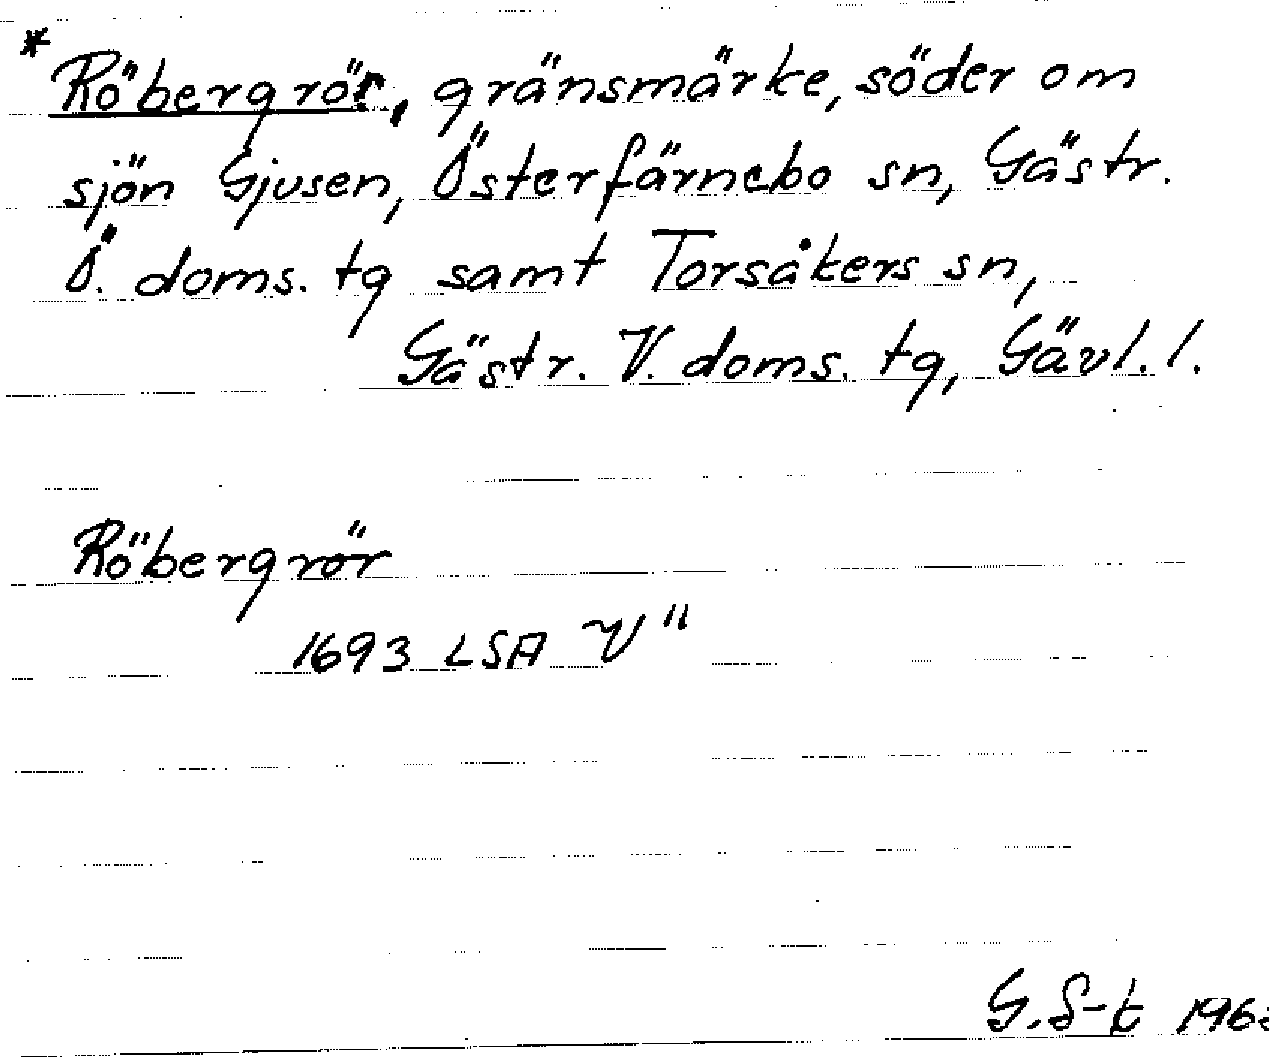 *Röbergrör, gränsmärke, söder om
sjön Gjusen, Österfärnebo sn, Gästr.
Ö. doms. tg samt Torsåkers sn,
Gästr. V. doms. tg, Gävl. l.
Röbergrör
1693 LSA V"
G. S-t